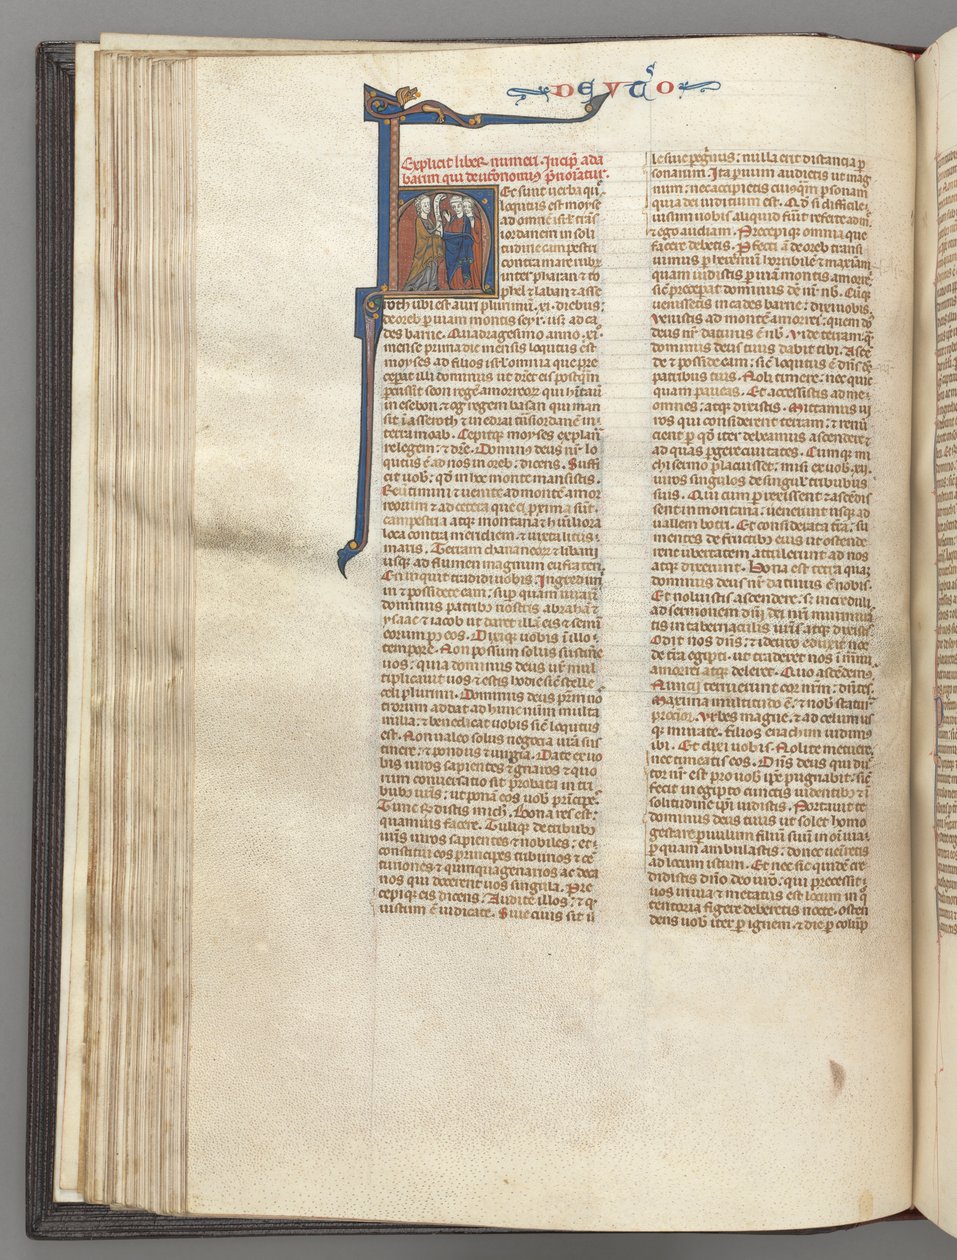 DEVTᔆO
Explicit liber numeri. Incip̃ ada
barim qui deut̾onomiũ p̃notatur.
Ec sunt uerba qͥ
locutus est moyse
ad omnẽ isr̃l trãs
iordanem in soli
tudine campestri
contra mare rubr̃
inter pharan ⁊ to
phel ⁊ laban ⁊ asse
roth ubi est auri plurimũ. xi. diebus
de oreb p uiam montis seyr. usq ad ca
des barne. Quadragesimo anno. xi.
mense prima die mensis locutus est
moyses ad filios isr̃l omnia que pre
ceperat illi dominus ut dic̃et eis postq̃m
percussit seon regẽ amorreorꝝ qui hitauit
in esebon. ⁊ og regem basan qui man
sit ĩ asseroth ⁊ in edrai trãs iordanẽ in
terra moab. Cepitq moyses explanare
legem. ⁊ dic̃e. Dominus deus nr̃ lo
cutus ẽ ad nos in oreb. dicens. Suffi
cit uob̃. qd̃ in hoc monte mansistis.
Reũtimini ⁊ uenite ad montẽ amor
reorum ⁊ ad cetera que ei p̃xima sũt.
campestria atq montana ⁊ humiliora
loca contra meridiem. ⁊ iuxta litus
maris. Terram chananeorꝝ ⁊ libani
usq ad flumen magnum eufraten.
En inquit tradidi uobis. Ingredimi
ni ⁊ possidete eam. sup quam iurauit
dominus patribꝫ nostris abrahã ⁊
ysaac ⁊ iacob ut daret illam eis ⁊ semini
eorum post eos. Dixiq uobis ĩ illo
tempore. Non possum solus sustinere
uos. quia dominus deus ur̃ mul
tiplicauit uos ⁊ estis hodie sic̃ stelle
celi plurimi. Dominus deus patrum uro
rum addat ad hunc num̃um multa
milia. ⁊ benedicat uobis sic̃ locutus
est. Non ualeo solus negocia ur̃a sus
tinere. ⁊ pondus ⁊ iurgia. Date ex uo
bis uiros sapientes ⁊ gnaros ⁊ quo
rum conuersatio sit probata in tri
bubꝫ ur̃is. ut ponã eos uob̃ principes.
Tunc r̃ndistis michi. Bona res est.
quam uis facere. Tuliq de tribubꝫ
ur̃is uiros sapientes ⁊ nobiles. et
constitui eos principes tribunos ⁊ cẽ
turiones ⁊ quinquagenarios ac deca
nos qui docerent uos singula. Pre
cepiq eis dicens. Audite illos. ⁊ q̃
iustum ẽ iudicate. Siue ciuis sit il
le siue pegrinus. nulla erit distancia p
sonarum. Ita paruum audietis ut mag
num. nec accipietis cuiusq̃m personam
quia dei iudicium est. Qd̃ si difficile
uisum uobis aliquid fũit referte ad me
⁊ ego audiam. Precepiq omnia que
facere debetis. Profecti ã de oreb transi
uimus p heremũ horribilẽ ⁊ maximam
quam uidistis p uiam montis amorrei
sic̃ preceperat dominus deus nr̃ nob̃. Cũq
uenissem in cades barne. dixi uobis.
Venistis ad montẽ amorrei. quem dñs
deus nr̃ daturus ẽ nob̃. Vide terram q̃
dominus deus tuus dabit tibi. Ascen
de ⁊ posside eam. sic̃ locutus ẽ dñs deus
patribus tuis. Noli timere. nec quic
quam paueas. Et accessistis ad me
omnes. atq dixistis. Mittamus ui
ros qui considerent terram. ⁊ renũ
cient per qd̃ iter debeamus ascendere ⁊
ad quas pergere ciuitates. Cumque mi
chi sermo placuisset. misi ex uob̃. xij.
uiros singulos de singulis tribubus
suis. Qui cum perrexissent ⁊ ascendis
sent in montana. uenerunt usq ad
uallem botri. Et considerata tra. su
mentes de fructibꝫ eius ut ostende
rent ubertatem attulerunt ad nos
atq dixerunt. Bona est terra quam
dominus deus nr̃ daturus ẽ nobis.
Et noluistis ascendere. sꝫ increduli
ad sermonem dñi dei nri murmura
tis in tabernaculis ur̃is atq dixistis
Odit nos dñs. ⁊ idcirco eduxit nos
de tr̃a egipti. ut traderet nos ĩ manu
amorrei atq deleret. Quo ascendemus
Nuncij terruerunt cor nr̃m. dicẽtes.
Maxima multitudo ẽ. ⁊ nob̃ statura
procerior. Vrbes magne. ⁊ ad celum us
q munite. filios enachim uidimus
ibi. Et dixi uobis. Nolite metuere
nec timeatis eos. Dñs deus qui duc
tor ur̃ est pro uob̃ ipse pugnabit. sic̃
fecit in egipto cunctis uidentibꝫ ⁊ ĩ
solitudine ipsi uidistis. Portauit te
dominus deus tuus ut solet homo
gestare paruulum filium suum in omi uia
per quam ambulastis. donec ueniretis
ad locum istum. Et nec sic quidẽ cre
didistis dño deo uro. qui precessit
uos in uia ⁊ metatus est locum in q̊
tentoria figere deberetis nocte. osten
dens uob̃ iter p ignem. ⁊ die p colũp